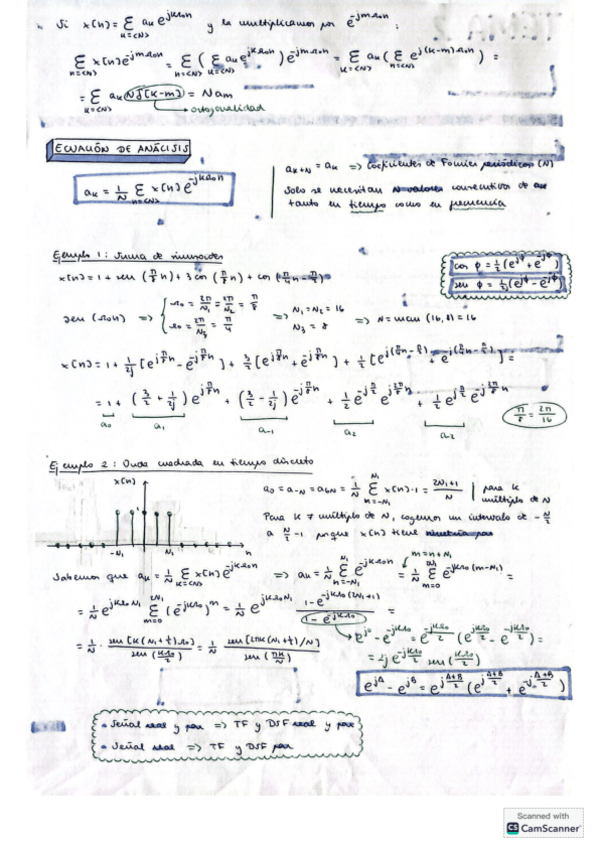 Si x[n] = Σ_{k=<N>} aₖ e^{jkΩ₀n} y la multiplicamos por e^{-jmΩ₀n}:
Σ_{n=<N>} x[n] e^{-jmΩ₀n} = Σ_{n=<N>} ( Σ_{k=<N>} aₖ e^{jkΩ₀n} ) e^{-jmΩ₀n} = Σ_{k=<N>} aₖ ( Σ_{n=<N>} e^{j(k-m)Ω₀n} ) =
= Σ_{k=<N>} aₖ N δ[k-m] = N aₘ
→ ortogonalidad
ECUACIÓN DE ANÁLISIS
aₖ = 1/N Σ_{n=<N>} x[n] e^{-jkΩ₀n}
aₖ₊N = aₖ ⇒ Coeficientes de Fourier periódicos (N)
Solo se necesitan N valores consecutivos de aₖ
tanto en tiempo como en frecuencia
Ejemplo 1: Suma de sinusoides
x[n] = 1 + sen (π/8 n) + 3 cos (π/8 n) + cos (π/4 n -
cos φ = 1/2 (e^{jφ} + e^{-jφ})
sen φ = 1/2j (e^{jφ} - e^{-jφ})
sen (Ω₀n) ⇒ { Ω₀ = 2π/N₁ = 2π/N₂ = π/8
Ω₀ = 2π/N₃ = π/4
⇒ N₁ = N₂ = 16
N₃ = 8
⇒ N = mcm (16, 8) = 16
x[n] = 1 + 1/2j [e^{jπ/8 n} - e^{-jπ/8 n}] + 3/2 [e^{jπ/8 n} + e^{-jπ/8 n}] + 1/2 [e^{j( + e^{-j( ] =
= 1 + (3/2 + 1/2j) e^{jπ/8 n} + (3/2 - 1/2j) e^{-jπ/8 n} + 1/2 e^{-jπ/2} e^{j2π/8 n} + 1/2 e^{jπ/2} e^{-j2π/8 n}
a₀ a₁ a₋₁ a₂ a₋₂
π/8 = 2π/16
Ejemplo 2: Onda cuadrada en tiempo discreto
x[n]
-N₁ N₁ n
a₀ = a₋N = a₆N = 1/N Σ_{n=-N₁}^{N₁} x[n]·1 = (2N₁+1)/N | para k múltiplo de N
Para k ≠ múltiplo de N, cogemos un intervalo de -N/2
a N/2 - 1 porque x[n] tiene simetría par
Sabemos que aₖ = 1/N Σ_{k=<N>} x[n] e^{-jkΩ₀n} ⇒ aₖ = 1/N Σ_{n=-N₁}^{N₁} e^{-jkΩ₀n} = 1/N Σ_{m=0}^{2N₁} e^{-jkΩ₀(m-N₁)} =
m = n + N₁
= 1/N e^{jkΩ₀N₁} Σ_{m=0}^{2N₁} (e^{-jkΩ₀})^m = 1/N e^{jkΩ₀N₁} (1 - e^{-jkΩ₀(2N₁+1)})/(1 - e^{-jkΩ₀}) =
= 1/N · sen [k(N₁+½)Ω₀] / sen (kΩ₀/2) = 1/N sen [2πk(N₁+½)/N] / sen (πk/N)
e^{j0} - e^{-jkΩ₀} = e^{-jkΩ₀/2} (e^{jkΩ₀/2} - e^{-jkΩ₀/2}) =
= 2j e^{-jkΩ₀/2} sen (kΩ₀/2)
e^{jA} - e^{jB} = e^{j(A+B)/2} (e^{j(A+B)/2} + e^{-j(A+B)/2})
• Señal real y par ⇒ TF y DSF real y par
• Señal real ⇒ TF y DSF par
Scanned with
CS CamScanner